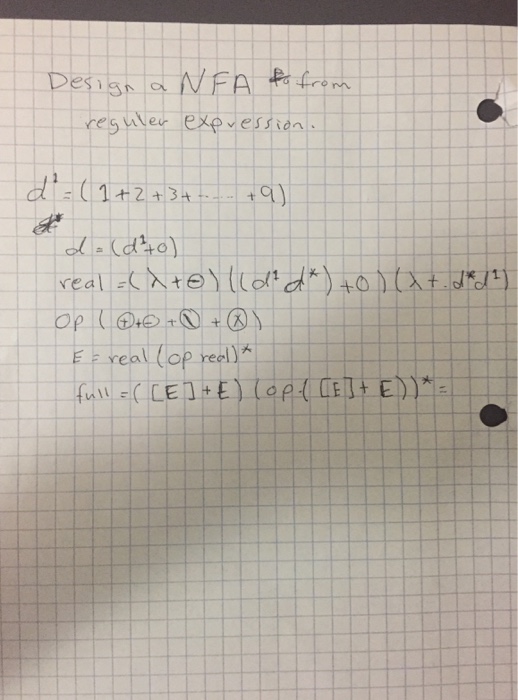 Design a NFA from
reguler expression.
d¹ = (1+2+3+......+9)
d = (d¹+0)
real = (λ+⊖)((d¹d*)+0)(λ+.d*d¹)
op (⊕+⊖+⦸+ⓧ)
E = real (op real)*
full = ([E]+E)(op([E]+E))* =